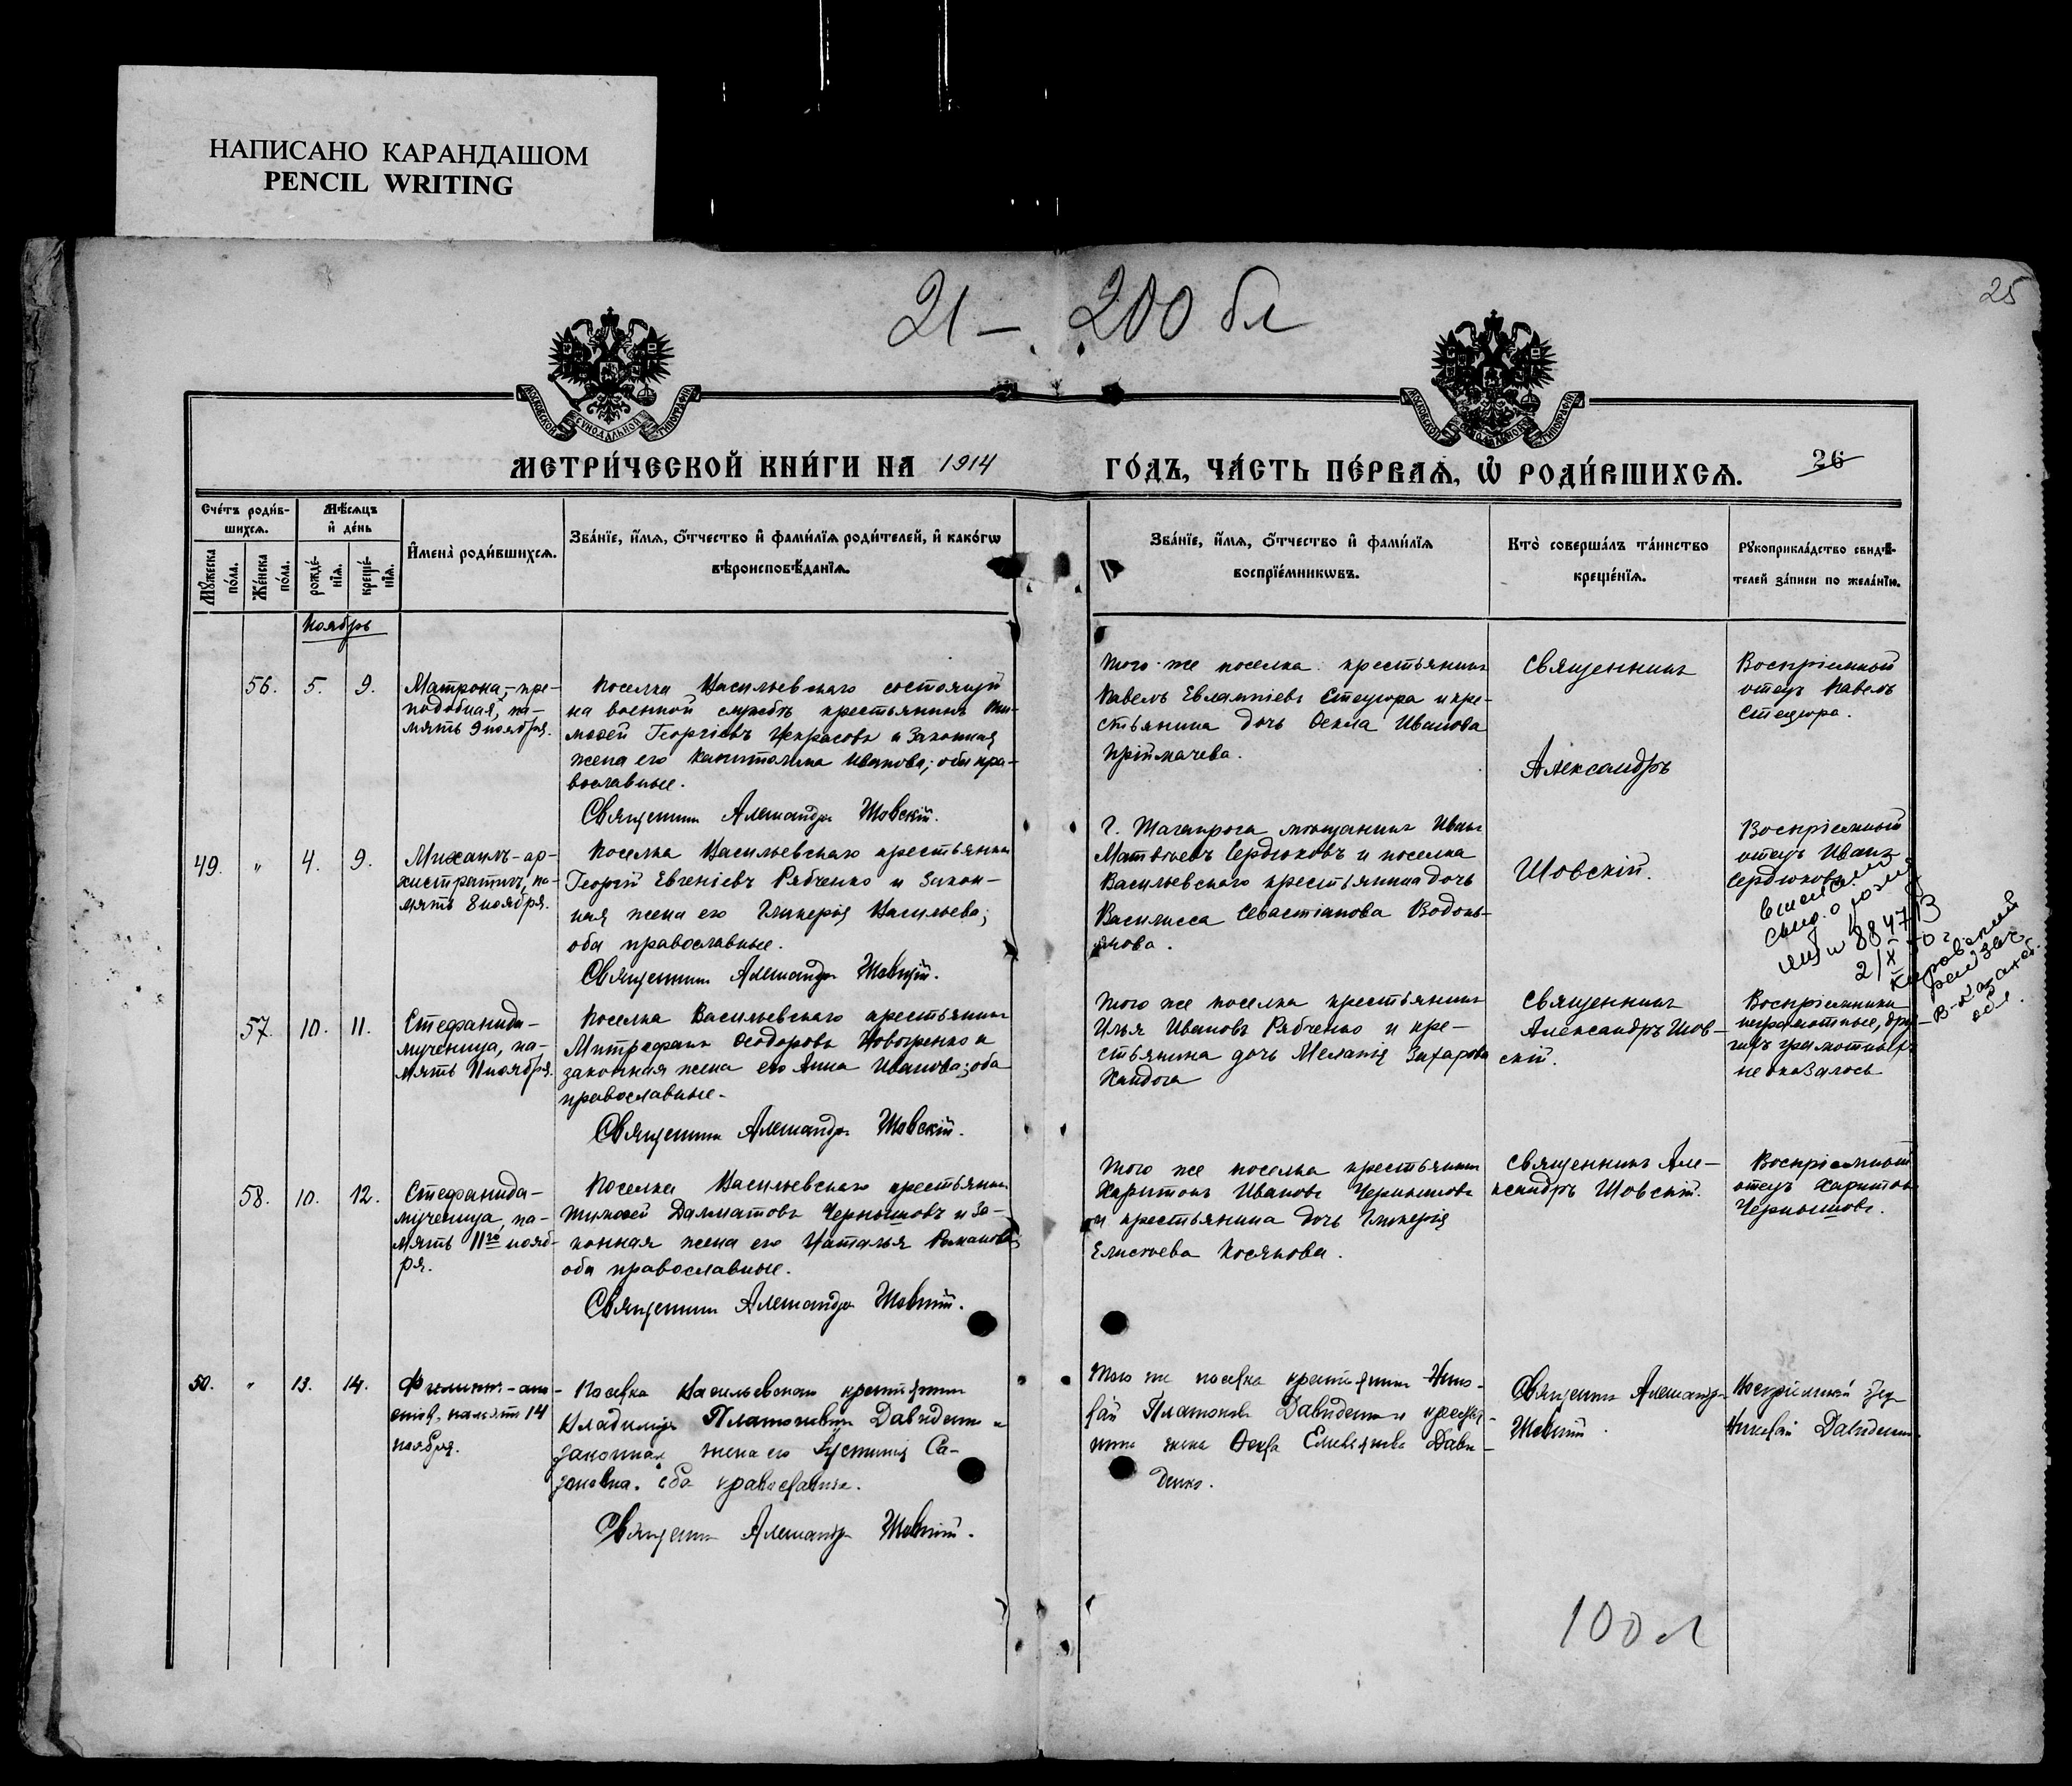 НАПИСАНО КАРАНДАШОМ
PENCIL WRITING
21 – 200 бл
25
МОСКОВСКОЙ СѴНОДАЛЬНОЙ ТИПОГРАФІИ
МОСКОВСКОЙ СѴНОДАЛЬНОЙ ТИПОГРАФІИ
МЕТРИ́ЧЕСКОЙ КНИ́ГИ НА 1914
ГО́ДЪ, ЧА́СТЬ ПЕ́РВАѦ, Ѡ҆ РОДИ́ВШИХСѦ.
26
Сче́тъ роди́в-
шихсѧ.
Мѣ́сѧцъ
и҆ де́нь
Мꙋ́жеска по́ла.
Же́нска по́ла.
рожде́-нїѧ.
креще́-нїѧ.
И҆мена̀ роди́вшихсѧ.
Зва́нїе, и҆́мѧ, ѻ҆́тчество и҆ фами́лїѧ роди́телей, и҆ како́гѡ
вѣроисповѣ́данїѧ.
Зва́нїе, и҆́мѧ, ѻ҆́тчество и҆ фами́лїѧ
воспрїе́мникѡвъ.
Кто̀ соверша́лъ та́инство
креще́нїѧ.
Рꙋкоприкла́дство свидѣ́-
телей за́писи по жела́нїю.
Ноябрь
56. 5. 9.
Матрона,– пре-
подобная, па-
мять 9 ноября.
Поселка Васильевскаго состоящій
на военной службѣ крестьянинъ Ти-
моѳей Георгіевъ Некрасовъ и законная
жена его Капитолина Иванова; оба пра-
вославные.
Священникъ Александръ Шовскій.
Того же поселка крестьянинъ
Павелъ Евлампіевъ Стецюра и кре-
стьянина дочь Ѳекла Иванова
Пріймачева.
Священникъ
Александръ
Шовскій.
Воспріемный
отецъ Павелъ
Стецюра.
49. " 4. 9.
Михаилъ – ар-
хистратигъ, па-
мять 8 ноября.
Поселка Васильевскаго крестьянинъ
Георгій Евгеніевъ Рябченко и закон-
ная жена его Гликерія Васильева;
оба православные.
Священникъ Александръ Шовскій.
Г. Таганрога мѣщанинъ Иванъ
Матвѣевъ Сердюковъ и поселка
Васильевскаго крестьянина дочь
Василисса Севастіанова Водопь-
янова.
Воспріемный
отецъ Иванъ
Сердюковъ.
8847
21 X 50 г
Кировский
В-Казахст.
обл.
57. 10. 11.
Стефанида –
мученица, па-
мять 11 ноября.
Поселка Васильевскаго крестьянинъ
Митрофанъ Ѳеодоровъ
законная жена его Анна Иванова; оба
православные.
Священникъ Александръ Шовскій.
Того же поселка крестьянинъ
Илья Ивановъ Рябченко и кре-
стьянина дочь Меланія Захарова
Хандога
Священникъ
Александръ Шов-
скій.
Воспріемники
неграмотные, дру-
гихъ грамотныхъ
не оказалось
58. 10. 12.
Стефанида –
мученица, па-
мять 11го нояб-
ря.
Поселка Васильевскаго крестьянинъ
Тимоѳей Далматовъ Чернышовъ и за-
конная жена его Наталья Романова;
оба православные.
Священникъ Александръ Шовскій.
Того же поселка крестьянинъ
Харитонъ Ивановъ Чернышовъ
и крестьянина дочь Гликерія
Елисѣева Косякова.
Священникъ Але-
ксандръ Шовскій.
Воспріемный
отецъ Харитонъ
Чернышовъ.
50. " 13. 14.
Филиппъ – апо-
столъ, память 14
ноября.
Поселка Васильевскаго крестьянинъ
Владиміръ Платоновичъ Давиденко и
законная жена его Іустинія Са-
зоновна. оба православные.
Священникъ Александръ Шовскій.
Того же поселка крестьянинъ Нико-
лай Платоновъ Давиденко и крестья-
нина жена Ѳекла Емельянова Дави-
денко.
Священникъ Александръ
Шовскій.
Воспріемный отецъ
Николай Давиденко.
100 л